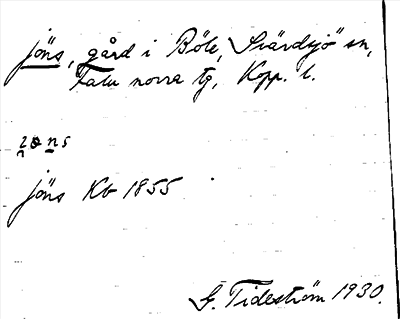 jöns, gård i Böle, Svärdsjö sn,
Falu norra tg, Kopp. l.
jöns Kb 1855
G. Tideström 1930.